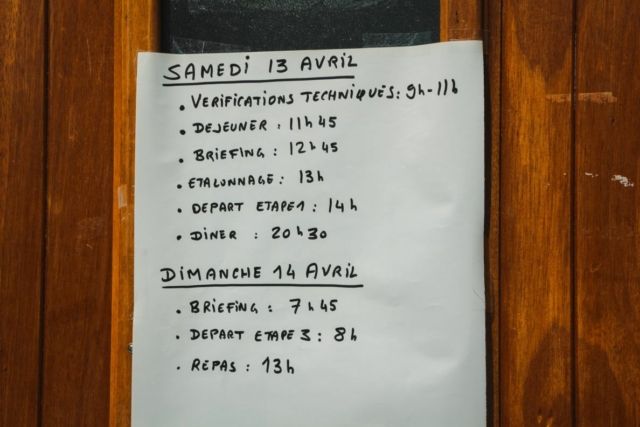 SAMEDI 13 AVRIL
• VERIFICATIONS TECHNIQUES: 9h-11h
• DEJEUNER : 11h45
• BRIEFING : 12h45
• ETALONNAGE : 13h
• DEPART ETAPE 1 : 14h
• DINER : 20h30
DIMANCHE 14 AVRIL
• BRIEFING : 7h45
• DEPART ETAPE 3 : 8h
• REPAS : 13h